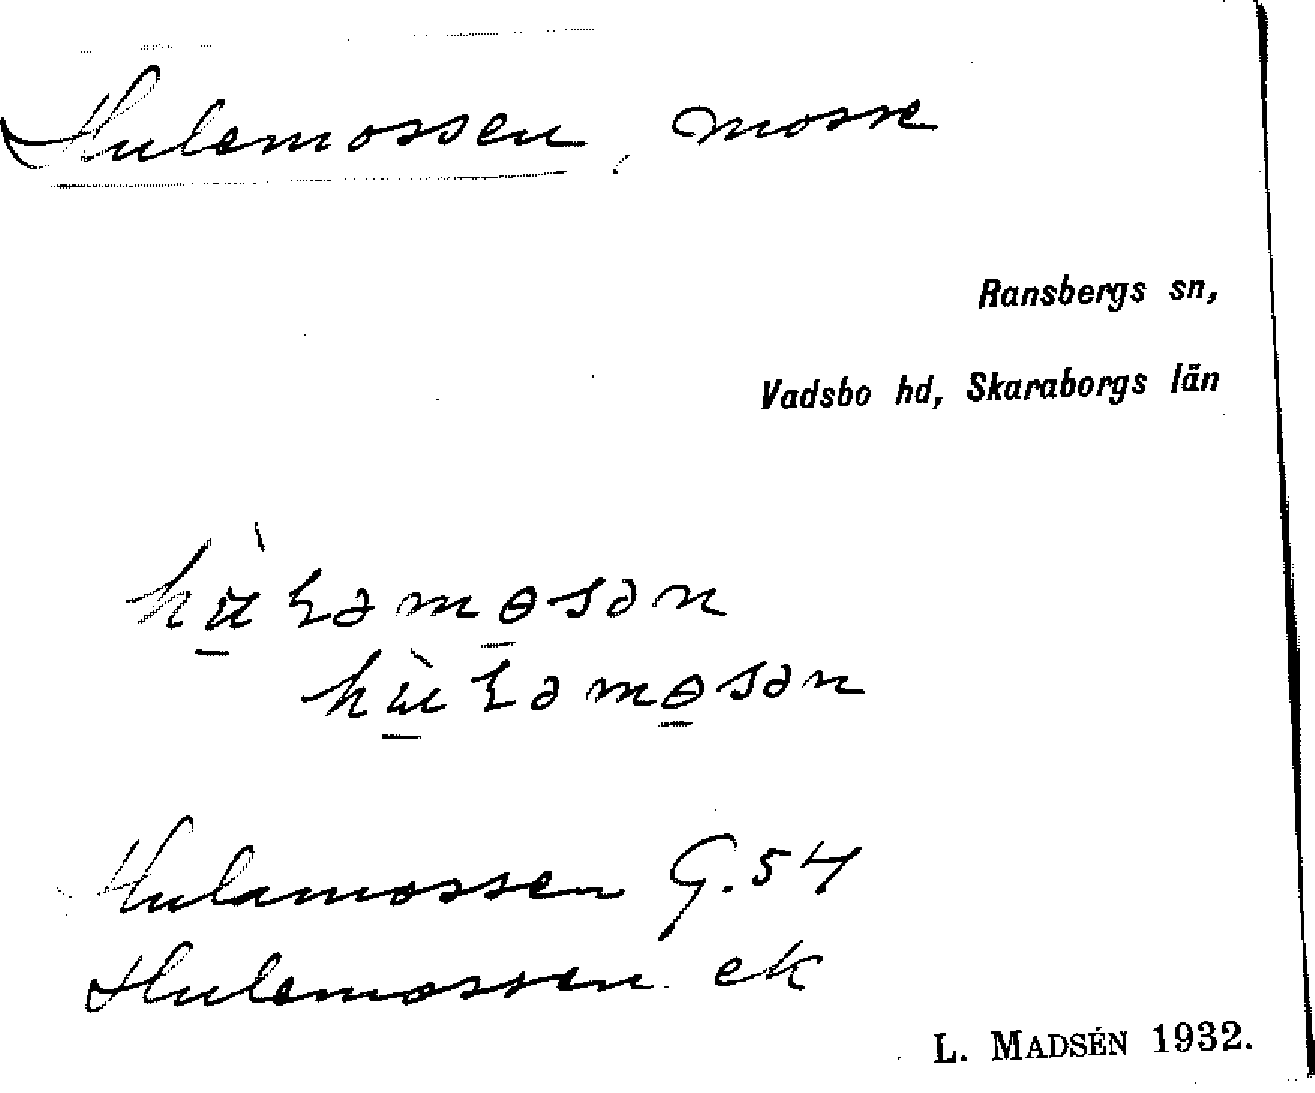 Hulemossen, mosse
Ransbergs sn,
Vadsbo hd, Skaraborgs län
Hulamossen G.54
Hulemossen ek
L. MADSÉN 1932.